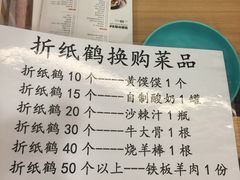 折纸鹤换购菜品
折纸鹤 10 个----黄馍馍 1 个
折纸鹤 15 个----自制酸奶 1 罐
折纸鹤 20 个----沙棘汁 1 瓶
折纸鹤 30 个----牛大骨 1 根
折纸鹤 40 个----烧羊棒 1 根
折纸鹤 50 个以上---铁板羊肉 1 份